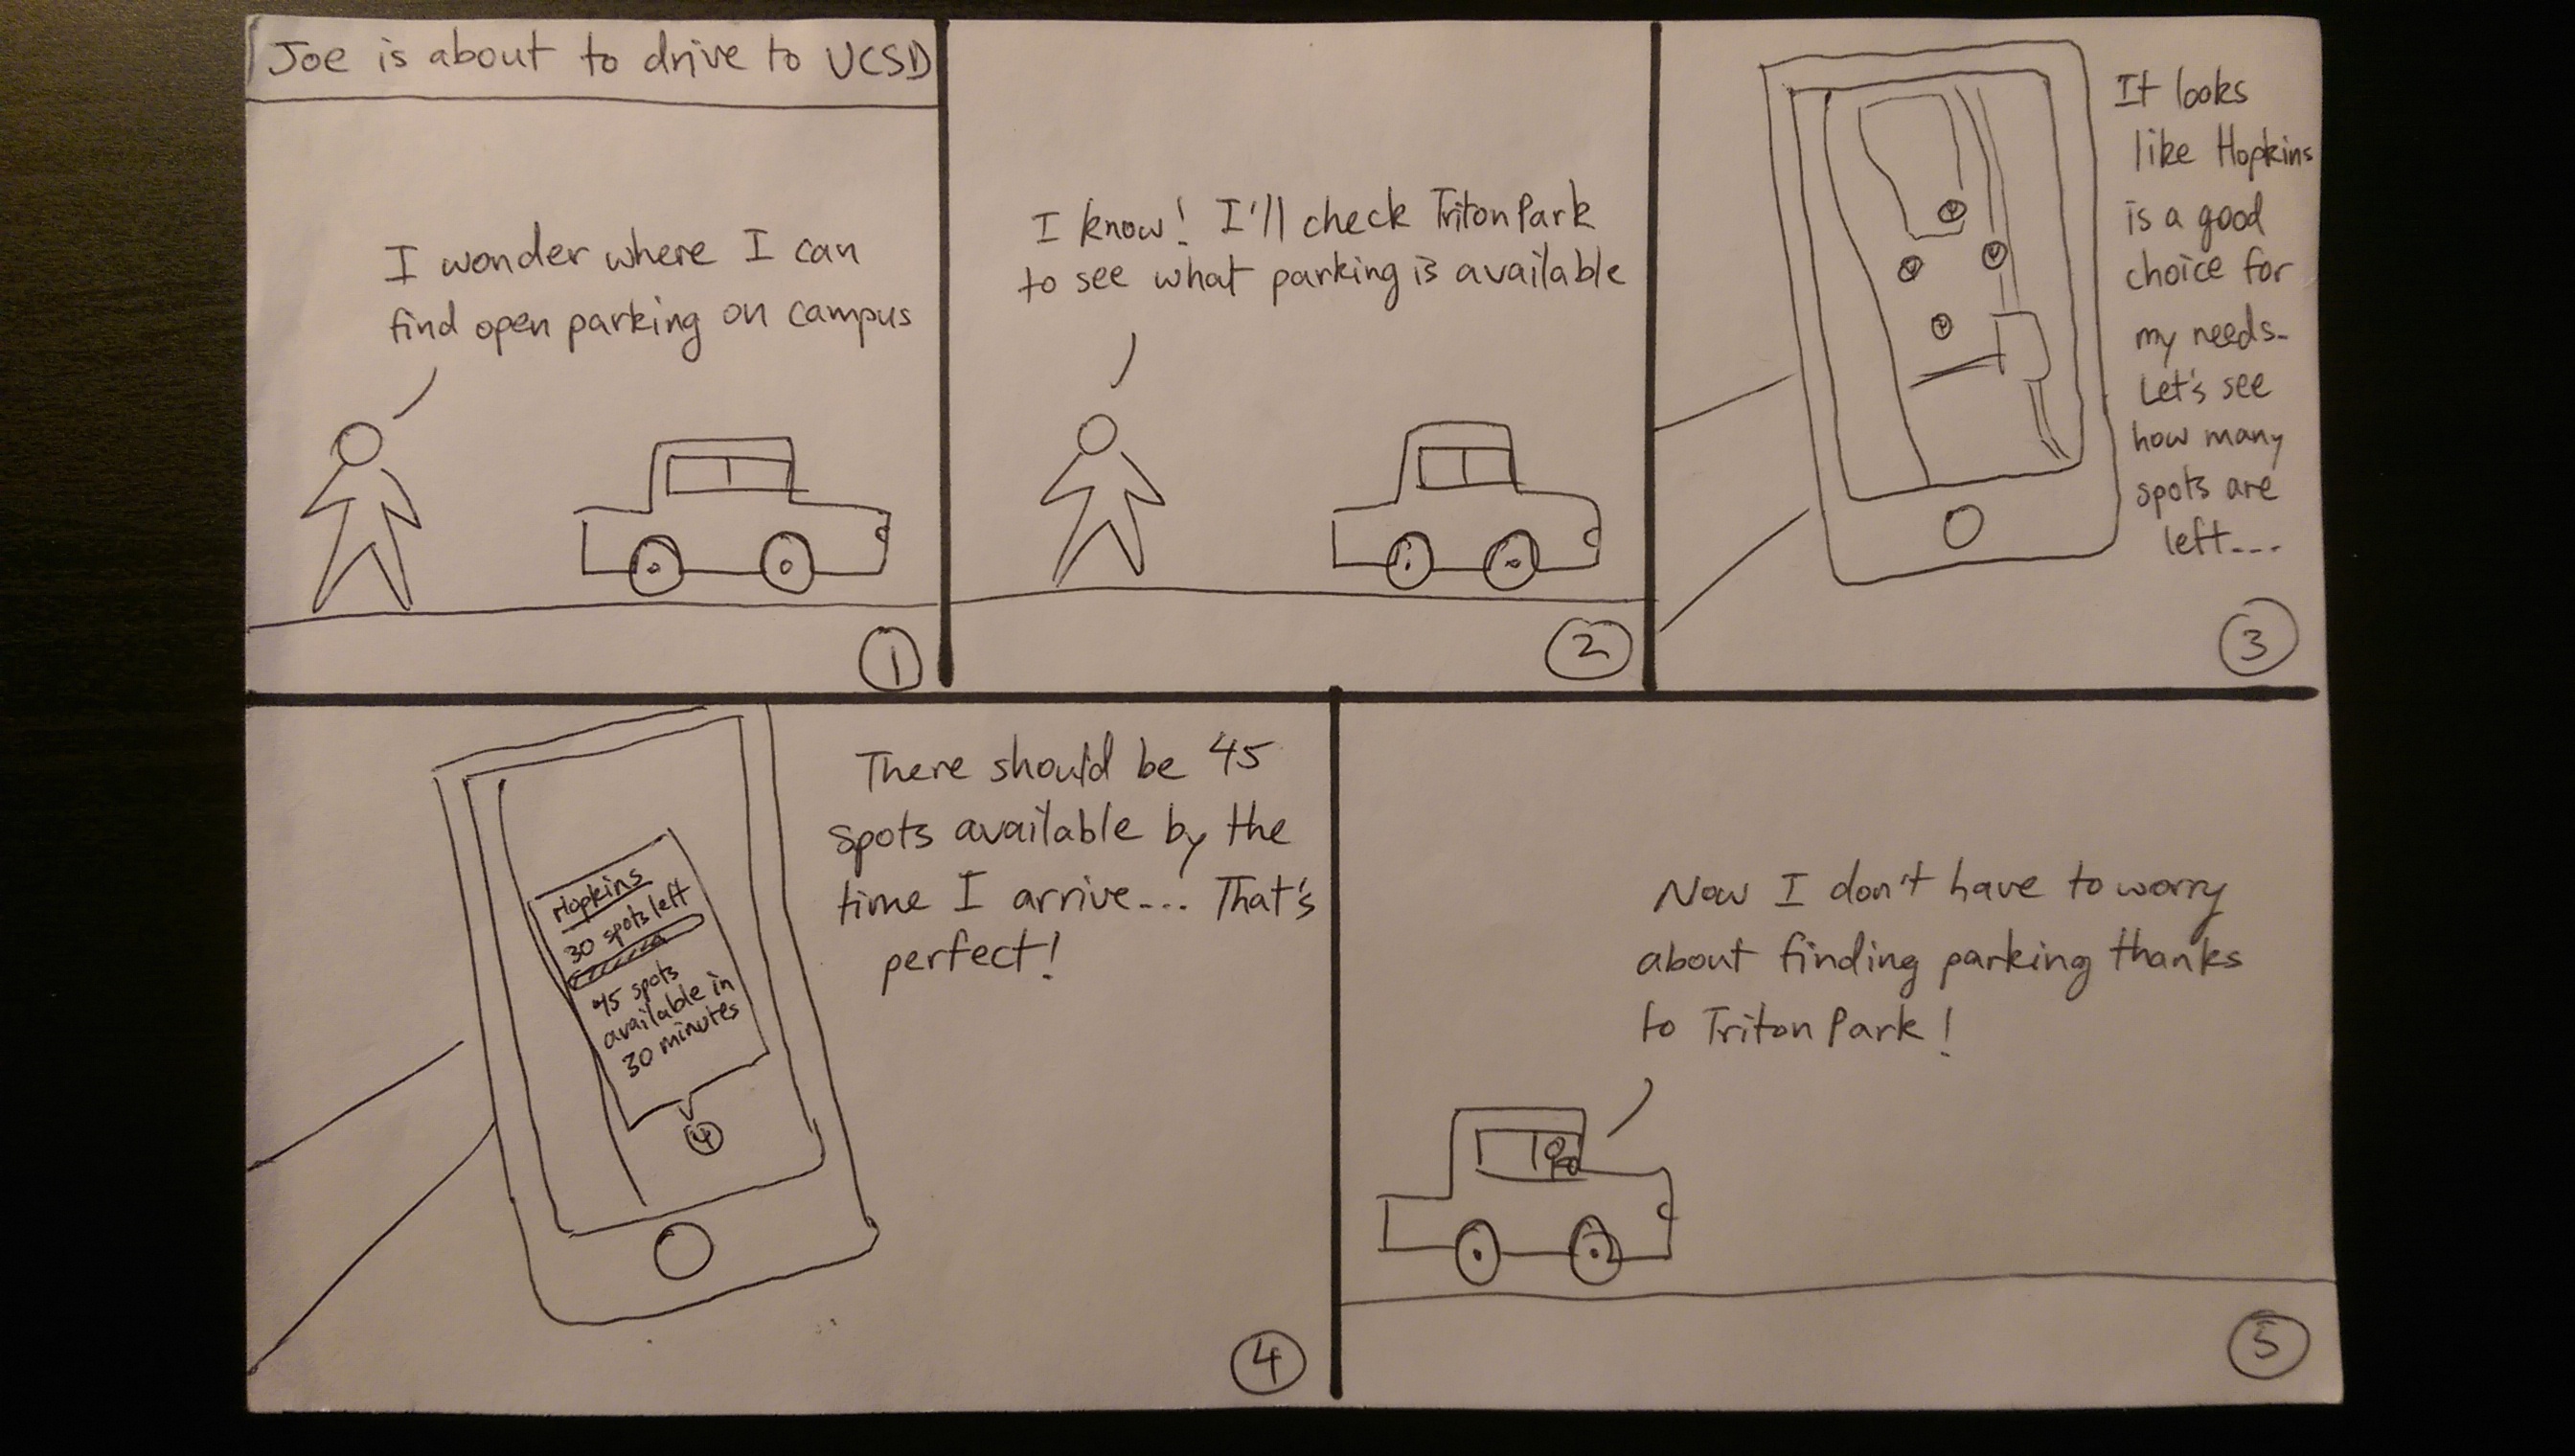 Joe is about to drive to UCSD
I wonder where I can
find open parking on campus
1
I know! I'll check Triton Park
to see what parking is available
2
It looks
like Hopkins
is a good
choice for
my needs.
Let's see
how many
spots are
left...
3
Hopkins
30 spots left
45 spots
available in
30 minutes
There should be 45
spots available by the
time I arrive... That's
perfect!
4
Now I don't have to worry
about finding parking thanks
to Triton Park!
5